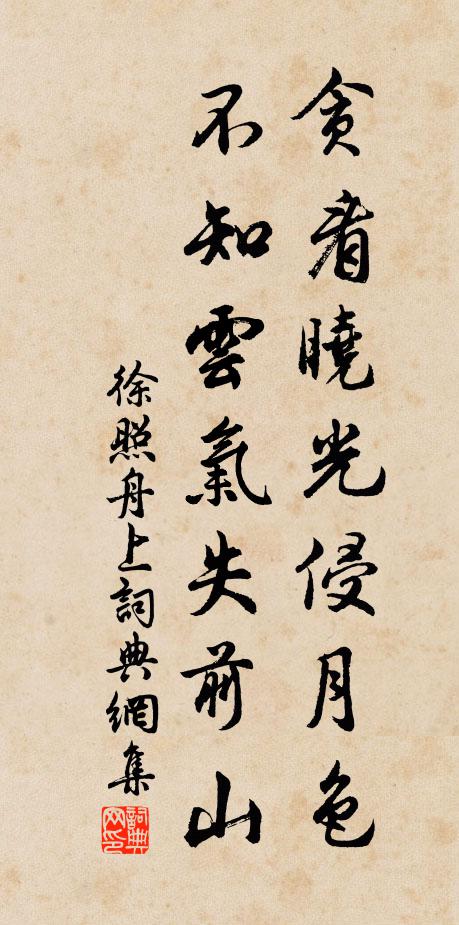 貪看曉光侵月色
不知雲氣失前山
徐照舟上詞典網集
詞典网印